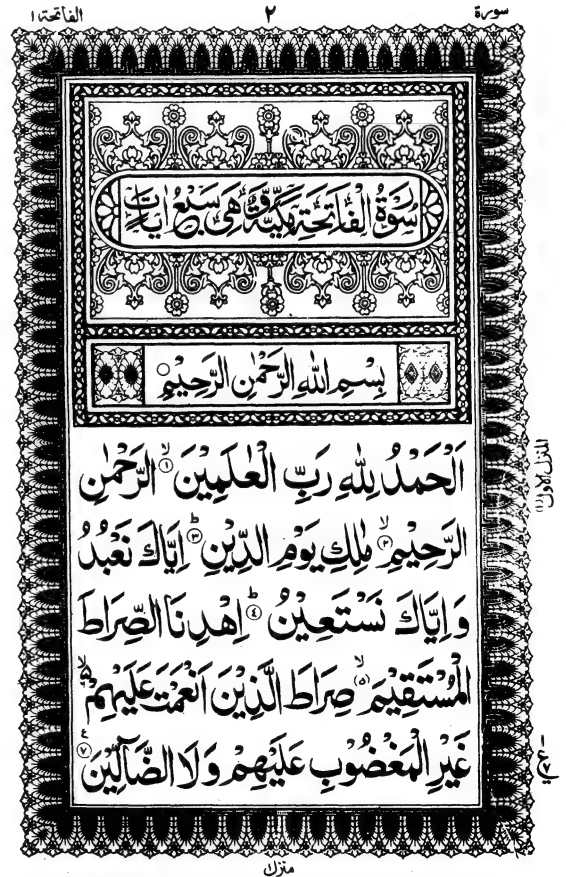 سورة ٢ الفاتحة ١
سُوْرَةُ الْفَاتِحَةِ مَكِّيَّةٌ وَّهِىَ سَبْعُ اٰيَاتٍ
بِسْمِ اللهِ الرَّحْمٰنِ الرَّحِيْمِ ○
اَلْحَمْدُ لِلّٰهِ رَبِّ الْعٰلَمِيْنَ ۙ﴿١﴾ الرَّحْمٰنِ
الرَّحِيْمِ ۙ﴿٢﴾ مٰلِكِ يَوْمِ الدِّيْنِ ؕ﴿٣﴾ اِيَّاكَ نَعْبُدُ
وَاِيَّاكَ نَسْتَعِيْنُ ؕ﴿٤﴾ اِهْدِنَا الصِّرَاطَ
الْمُسْتَقِيْمَ ۙ﴿٥﴾ صِرَاطَ الَّذِيْنَ اَنْعَمْتَ عَلَيْهِمْ ۙ﴿٦﴾
غَيْرِ الْمَغْضُوْبِ عَلَيْهِمْ وَلَا الضَّآلِّيْنَ ﴿٧﴾
المنزل الاول (١)
منزل